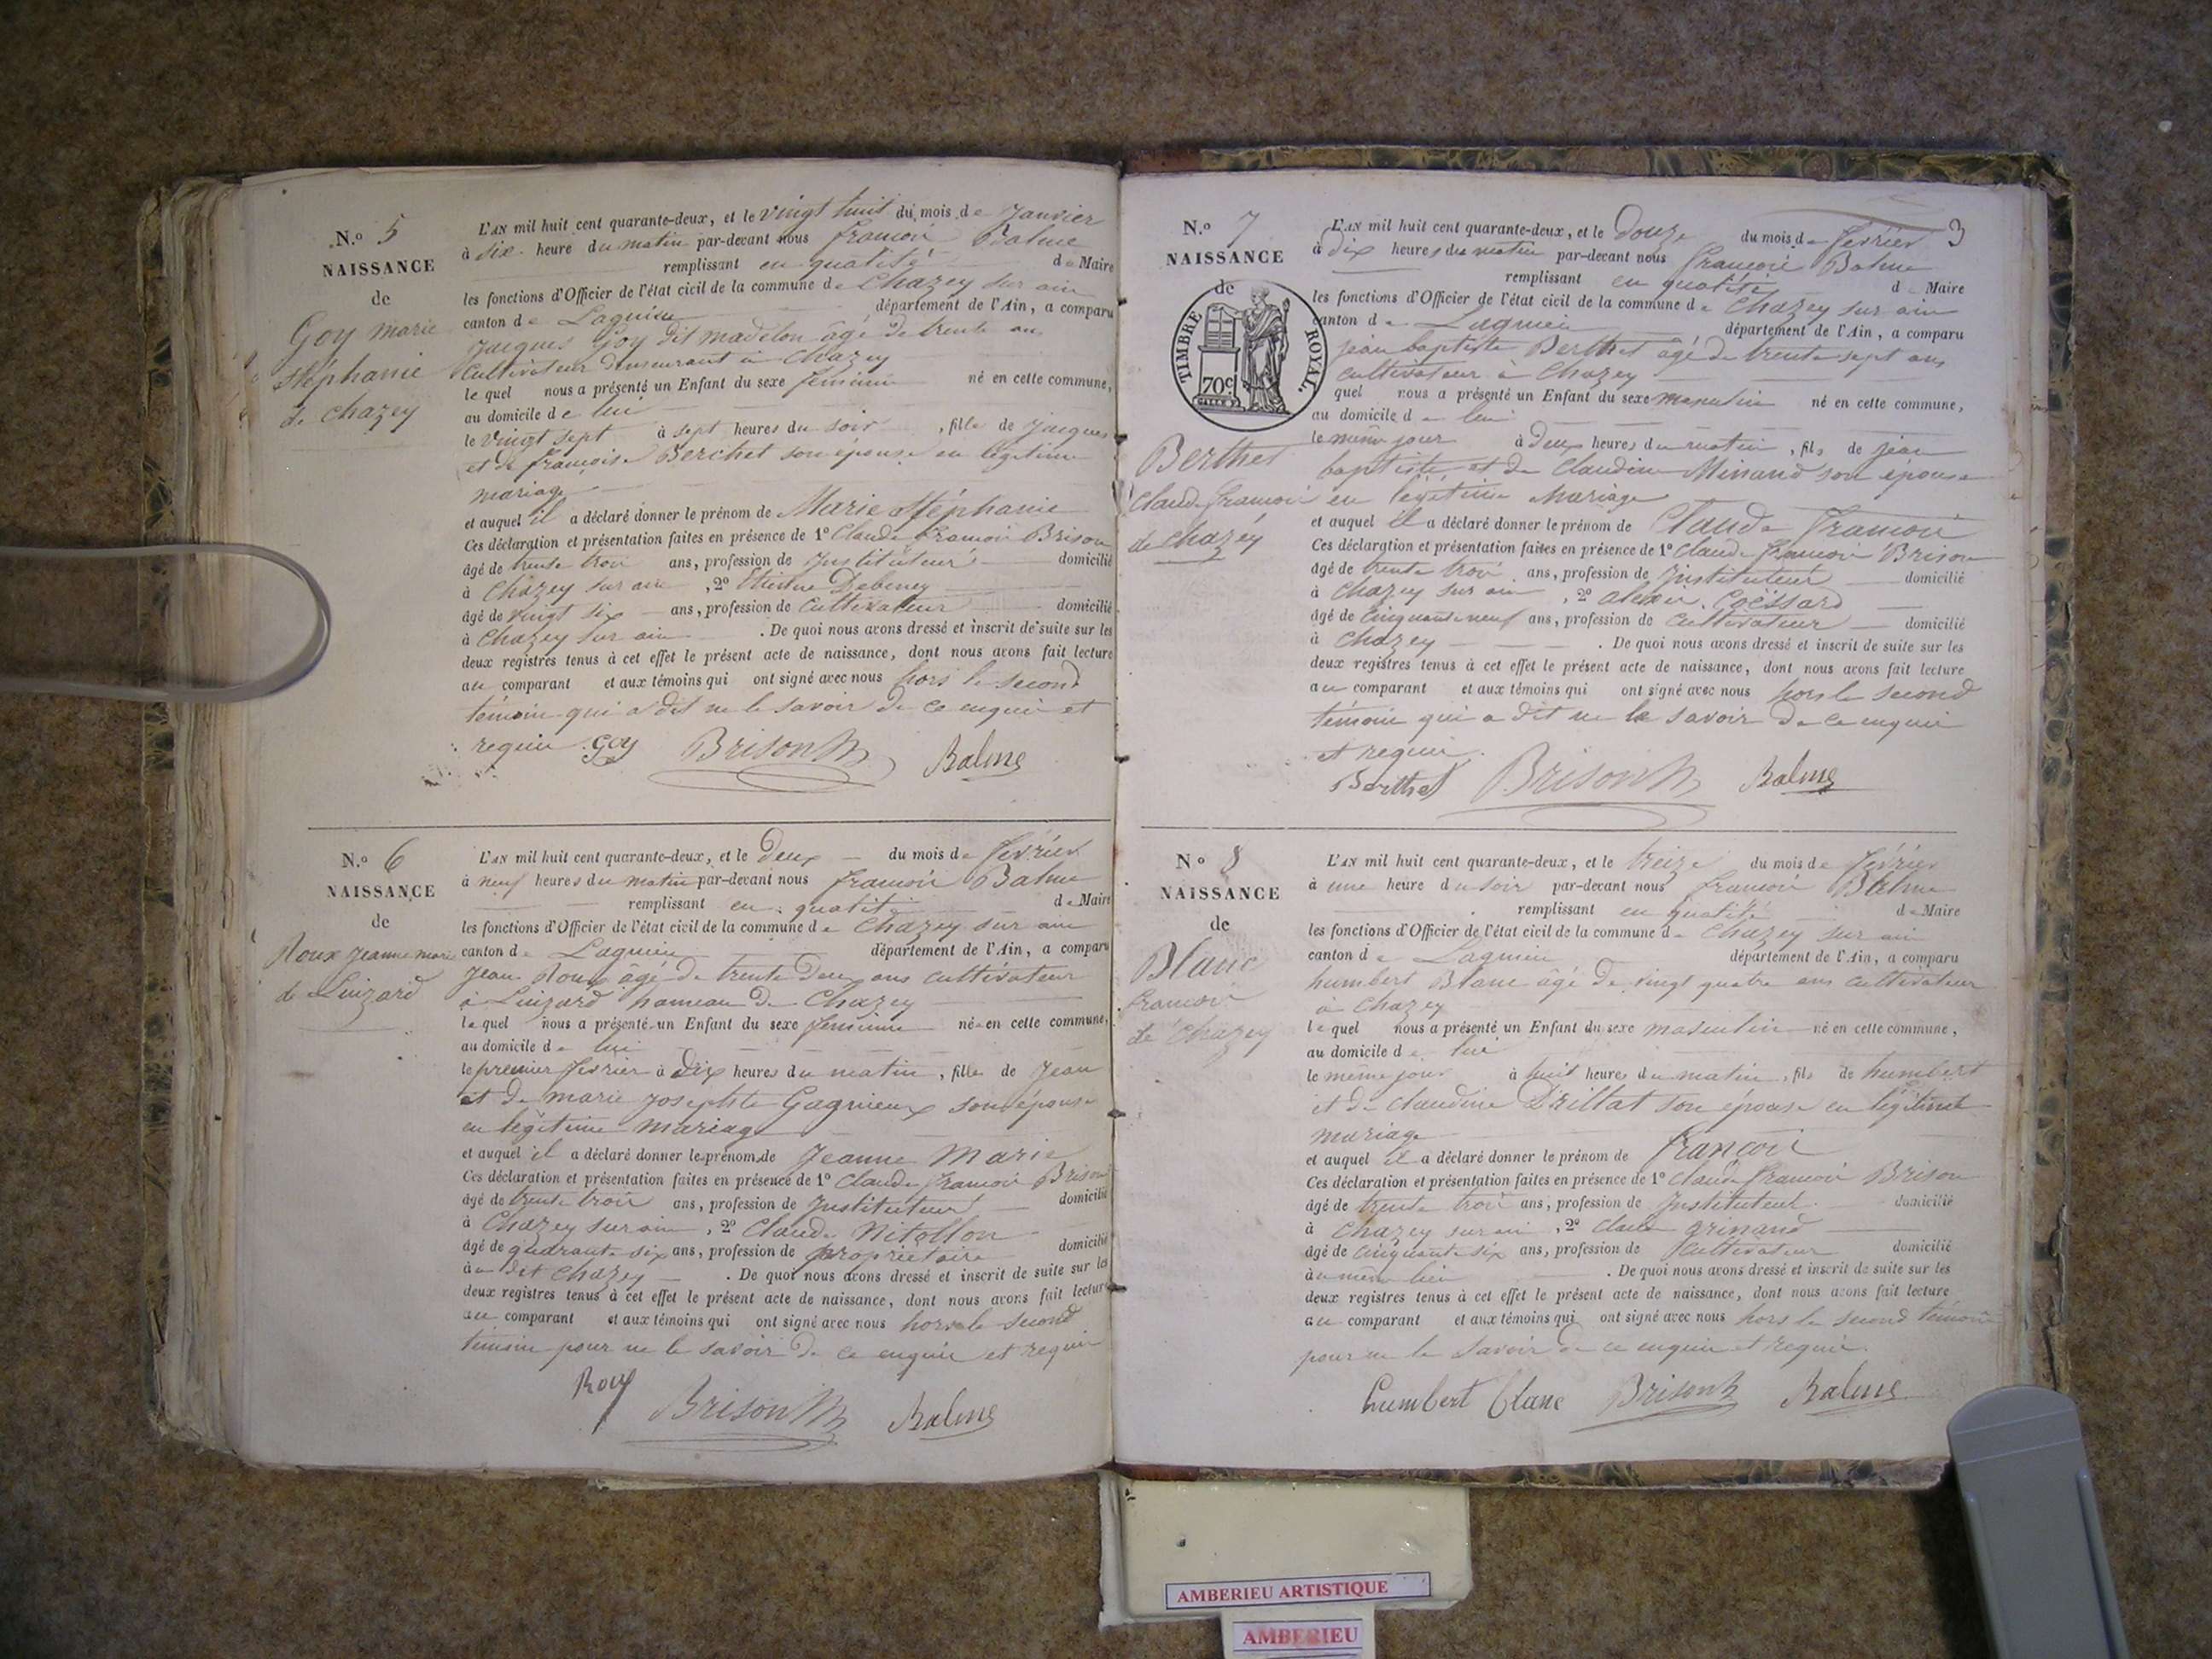 N.o 5
NAISSANCE
de
Goy marie
stéphanie
de chazey
L'AN mil huit cent quarante-deux, et le vingt huit du mois de Janvier
à six heure du matin par-devant nous françois Balme
remplissant en qualité de Maire
les fonctions d'Officier de l'état civil de la commune de Chazey sur ain
canton de Lagnieu département de l'Ain, a comparu
Jacques Goy dit madelon âgé de trente ans
Cultivateur demeurant à Chazey
le quel nous a présenté un Enfant du sexe féminin né en cette commune,
au domicile de lui
le vingt sept à sept heures du soir, fille de Jacques
et de françoise Berchet son épouse en légitime
mariage
et auquel il a déclaré donner le prénom de Marie Stéphanie
Ces déclaration et présentation faites en présence de 1o Claude françois Brison
âgé de trente trois ans, profession de Instituteur domicilié
à Chazey sur ain, 2o Etienne Debeney
âgé de vingt six ans, profession de Cultivateur domicilié
à Chazey sur ain. De quoi nous avons dressé et inscrit de suite sur les
deux registres tenus à cet effet le présent acte de naissance, dont nous avons fait lecture
au comparant et aux témoins qui ont signé avec nous hors le second
témoin qui a dit ne le savoir de ce enquis et
requis Goy Brison Balme
N.o 6
NAISSANCE
de
Roux Jeanne marie
de Luizard
L'AN mil huit cent quarante-deux, et le Deux du mois de février
à neuf heures du matin par-devant nous françois Balme
remplissant en qualité de Maire
les fonctions d'Officier de l'état civil de la commune de Chazey sur ain
canton de Lagnieu département de l'Ain, a comparu
Jean Roux âgé de trente Deux ans cultivateur
à Luizard hameau de Chazey
le quel nous a présenté un Enfant du sexe féminin née en cette commune,
au domicile de lui
le premier février à Dix heures du matin, fille de Jean
et de marie Josephte Gagnieux son épouse
en légitime mariage
et auquel il a déclaré donner les prénoms de Jeanne Marie
Ces déclaration et présentation faites en présence de 1o Claude françois Brison
âgé de trente trois ans, profession de Instituteur domicilié
à Chazey sur ain, 2o Claude Nitollon
âgé de quarante six ans, profession de propriétaire domicilié
au dit Chazey. De quoi nous avons dressé et inscrit de suite sur les
deux registres tenus à cet effet le présent acte de naissance, dont nous avons fait lecture
au comparant et aux témoins qui ont signé avec nous hors le second
témoin pour ne le savoir de ce enquis et requis
Roux Brison Balme
3
N.o 7
NAISSANCE
de
TIMBRE ROYAL.
70c
Berthet
Claude françois
de Chazey
L'AN mil huit cent quarante-deux, et le Douze du mois de février
à Dix heures du matin par-devant nous françois Balme
remplissant en qualité de Maire
les fonctions d'Officier de l'état civil de la commune de Chazey sur ain
canton de Lagnieu département de l'Ain, a comparu
jean baptiste Berthet âgé de trente sept ans
cultivateur à Chazey
quel nous a présenté un Enfant du sexe masculin né en cette commune,
au domicile de lui
le même jour à Deux heures du matin, fils de jean
baptiste et de claudine Minand son épouse
en légitime Mariage
et auquel il a déclaré donner le prénom de Claude françois
Ces déclaration et présentation faites en présence de 1o Claude françois Brison
âgé de trente trois ans, profession de Instituteur domicilié
à Chazey sur ain, 2o alexis Coëssard
âgé de Cinquante neuf ans, profession de cultivateur domicilié
à Chazey. De quoi nous avons dressé et inscrit de suite sur les
deux registres tenus à cet effet le présent acte de naissance, dont nous avons fait lecture
au comparant et aux témoins qui ont signé avec nous hors le second
témoin qui a dit ne le savoir de ce enquis
et requis.
Berthet Brison Balme
N.o 8
NAISSANCE
de
Blanc
françois
de Chazey
L'AN mil huit cent quarante-deux, et le treize du mois de février
à une heure du soir par-devant nous françois Balme
remplissant en qualité de Maire
les fonctions d'Officier de l'état civil de la commune de Chazey sur ain
canton de Lagnieu département de l'Ain, a comparu
humbert Blanc âgé de vingt quatre ans cultivateur
à Chazey
le quel nous a présenté un Enfant du sexe masculin né en cette commune,
au domicile de lui
le même jour à huit heures du matin, fils de humbert
et de claudine Drillat son épouse en légitime
mariage
et auquel il a déclaré donner le prénom de françois
Ces déclaration et présentation faites en présence de 1o Claude françois Brison
âgé de trente trois ans, profession de Instituteur domicilié
à Chazey sur ain, 2o claude grinand
âgé de cinquante six ans, profession de Cultivateur domicilié
au même lieu. De quoi nous avons dressé et inscrit de suite sur les
deux registres tenus à cet effet le présent acte de naissance, dont nous avons fait lecture
au comparant et aux témoins qui ont signé avec nous hors le second témoin
pour ne le savoir de ce enquis et requis.
humbert blanc Brison Balme
AMBERIEU ARTISTIQUE
AMBERIEU